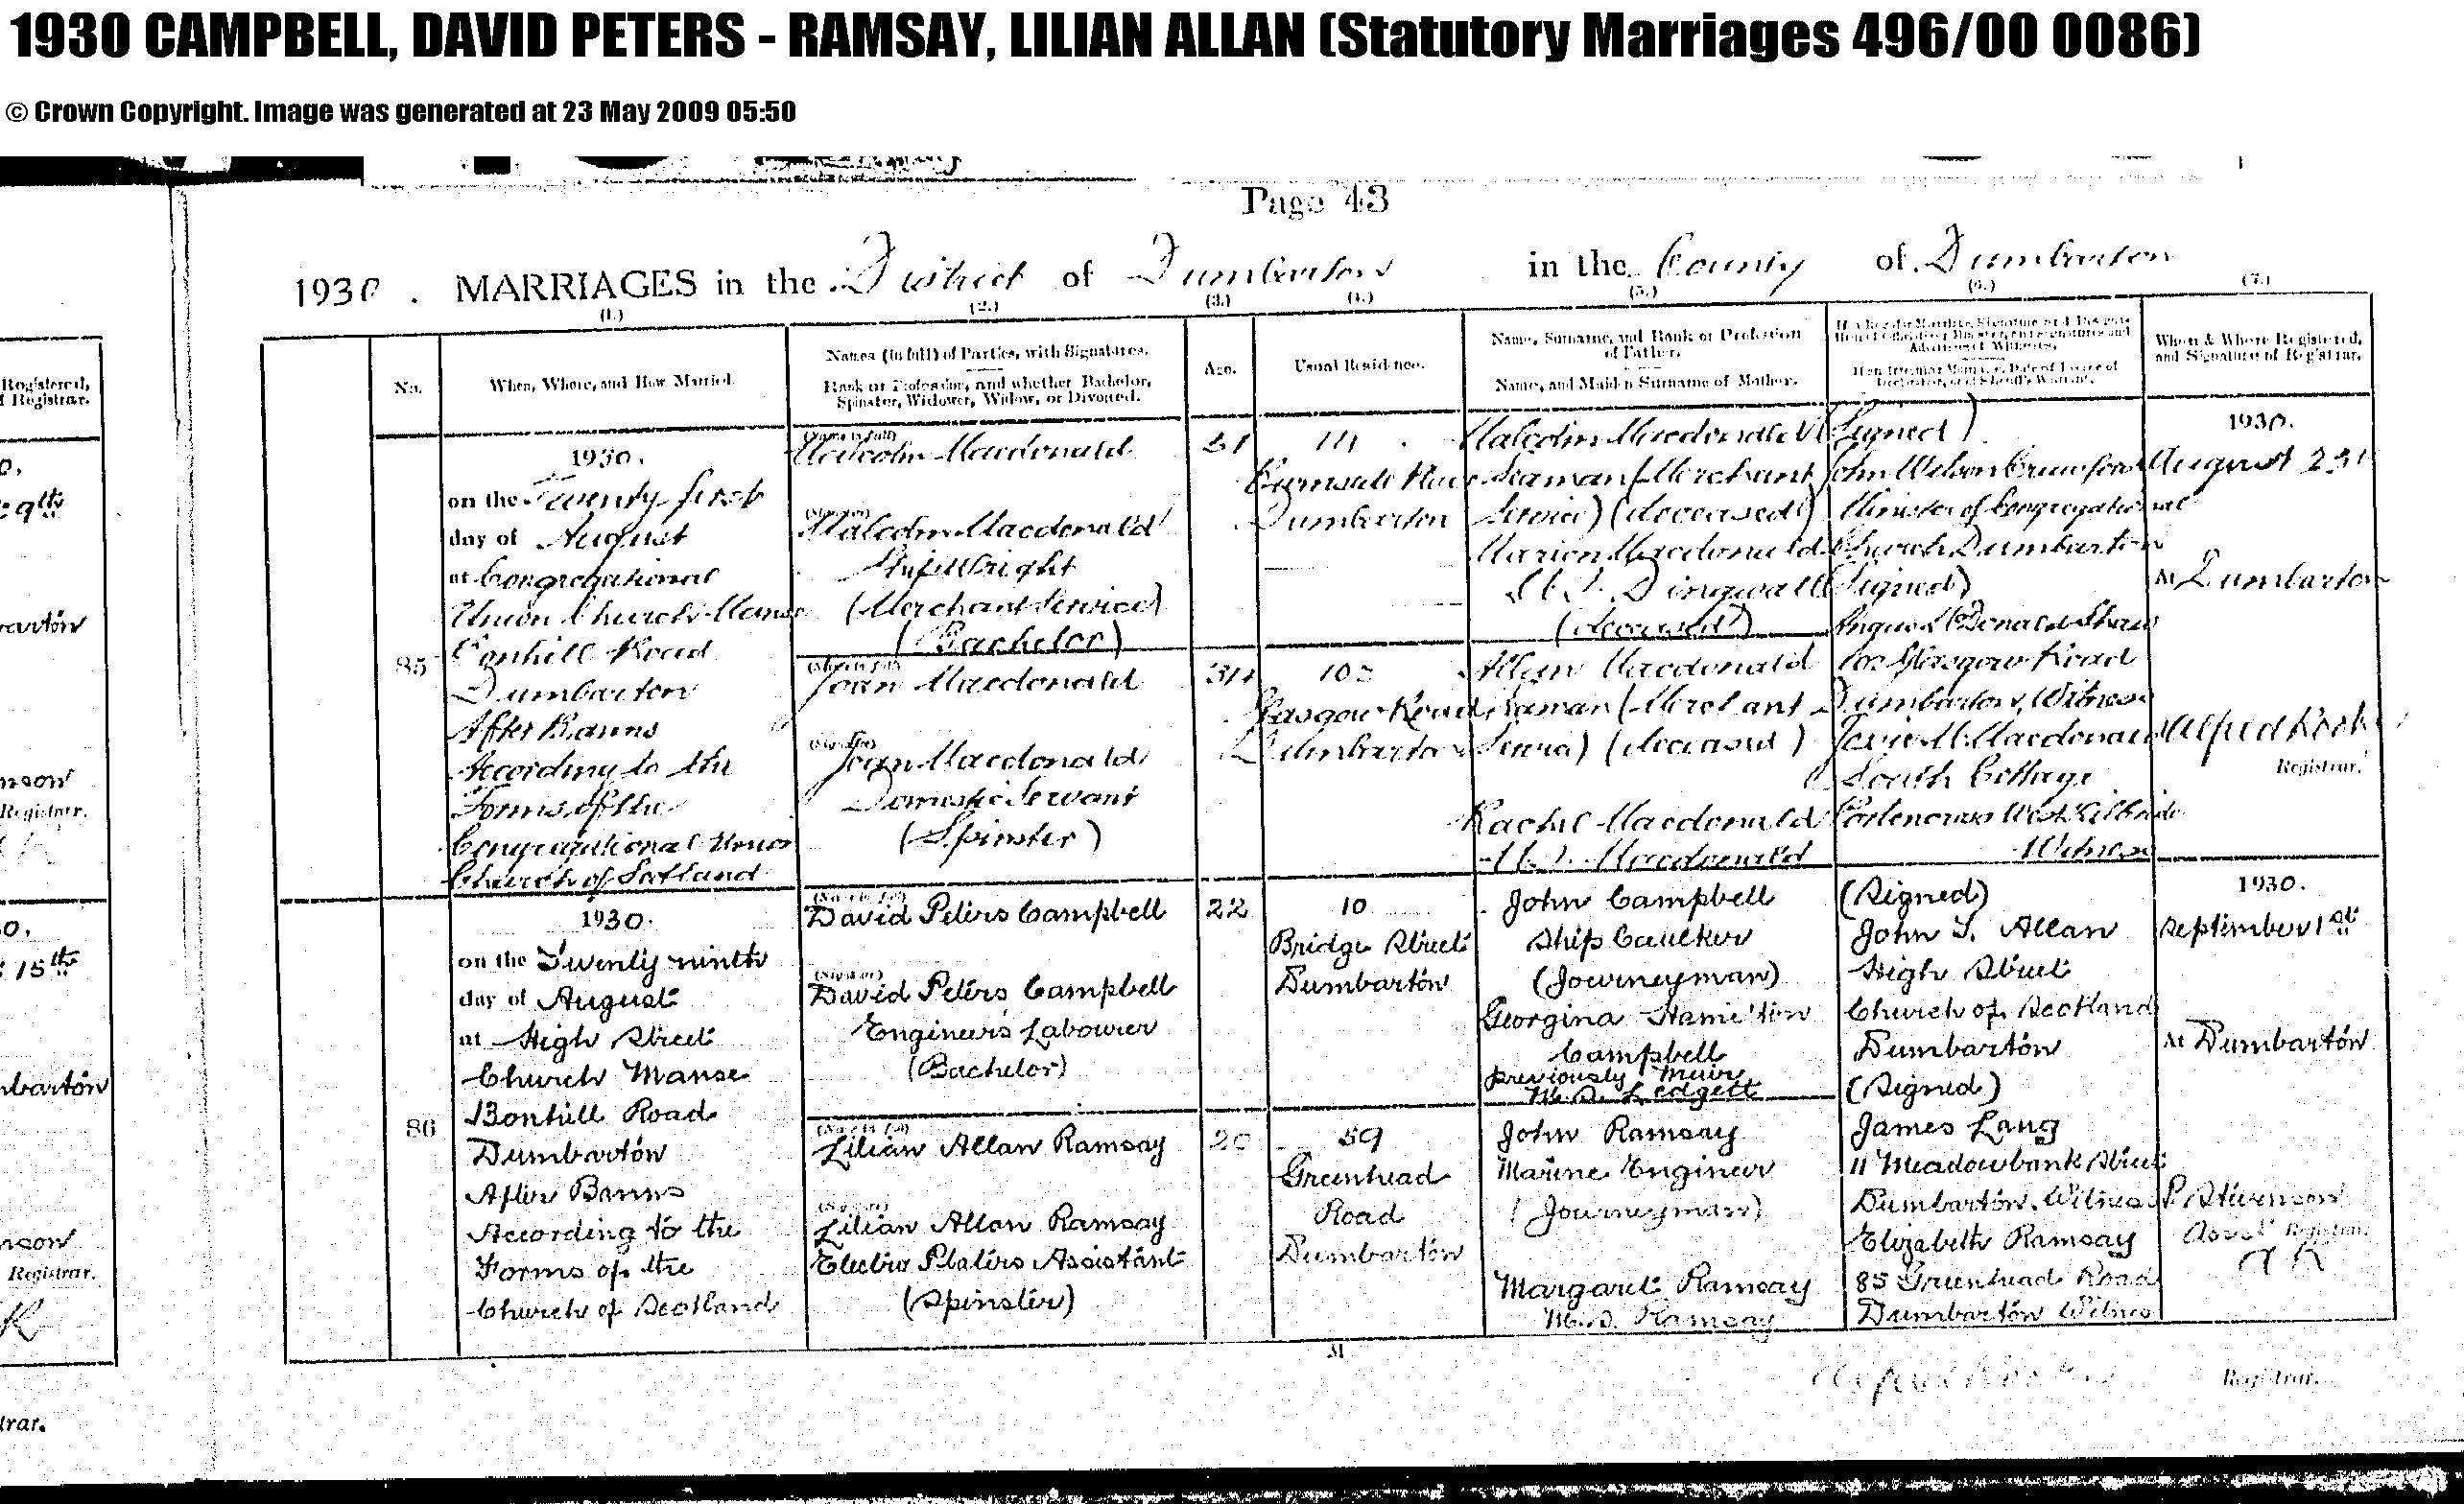 1930 CAMPBELL, DAVID PETERS - RAMSAY, LILIAN ALLAN (Statutory Marriages 496/00 0086)
© Crown Copyright. Image was generated at 23 May 2009 05:50
Page 43
1930. MARRIAGES in the District of Dumbarton in the County of Dumbarton
(1.) (2.) (3.) (4.) (5.) (6.) (7.)
No.
When, Where, and How Married.
Names (in full) of Parties, with Signatures.
Rank or Profession, and whether Bachelor,
Spinster, Widower, Widow, or Divorced.
Age.
Usual Residence.
Name, Surname, and Rank or Profession
of Father.
Name, and Maiden Surname of Mother.
When & Where Registered,
and Signature of Registrar.
85
1930.
on the Twenty first
day of August
at Congregational
Union Church Manse
Bonhill Road
Dumbarton
After Banns
According to the
Forms of the
Congregational Union
Church of Scotland
(Name in full)
Malcolm Macdonald
(Signed)
Malcolm Macdonald
Shipwright
(Merchant Service)
(Bachelor)
(Name in full)
Joan Macdonald
(Signed)
Joan Macdonald
Domestic Servant
(Spinster)
31
34
Dumbarton
Glasgow Road
Dumbarton
Malcolm Macdonald
Seaman (Merchant
Service) (deceased)
Marion Macdonald
M.S. Dingwall
(deceased)
Allan Macdonald
Seaman (Merchant
Service) (deceased)
Rachel Macdonald
M.S. Macdonald
(Signed)
John Wilson Crawford
Minister of Congregational
Church Dumbarton
(Signed)
Angus McDonald Shaw
Glasgow Road
Dumbarton, Witness
Macdonald
South Cottage
Portencross West Kilbride
Witness
1930.
August 23rd
At Dumbarton
Alfred
Registrar.
86
1930.
on the Twenty ninth
day of August
at High Street
Church Manse
Bonhill Road
Dumbarton
After Banns
According to the
Forms of the
Church of Scotland
(Name in full)
David Peters Campbell
(Signed)
David Peters Campbell
Engineer's Labourer
(Bachelor)
(Name in full)
Lilian Allan Ramsay
(Signed)
Lilian Allan Ramsay
Electro Platers Assistant
(Spinster)
22
20
10
Bridge Street
Dumbarton
59
Greenhead
Road
Dumbarton
John Campbell
Ship Caulker
(Journeyman)
Georgina Hamilton
Campbell
previously Muir
M.S. Ledgett
John Ramsay
Marine Engineer
(Journeyman)
Margaret Ramsay
M.S. Ramsay
(Signed)
John T. Allan
High Street
Church of Scotland
Dumbarton
(Signed)
James Lang
11 Meadowbank Street
Dumbarton. Witness
Elizabeth Ramsay
85 Greenhead Road
Dumbarton Witness
1930.
September 1st
At Dumbarton
P. Stevenson
Asst Registrar.
AR
M
Registrar.
Registered,
Registrar.
9th
arton
nson
Registrar.
15th
mbarton
nson
Registrar.
trar.